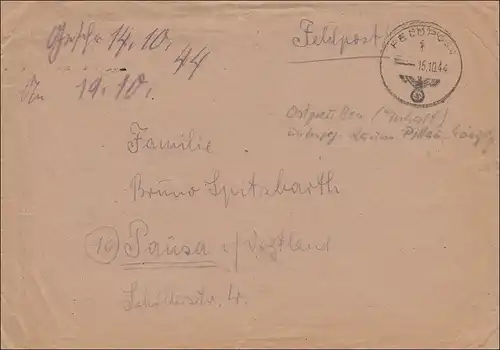 Gesch. 14.10.44
An 19.10.
Feldpost
FELDPOST
f
15.10.44
Ostpreußen (Inhalt)
Pillau
Familie
Bruno Spitzbarth
(10) Pausa i/Vogtland
str. 4.